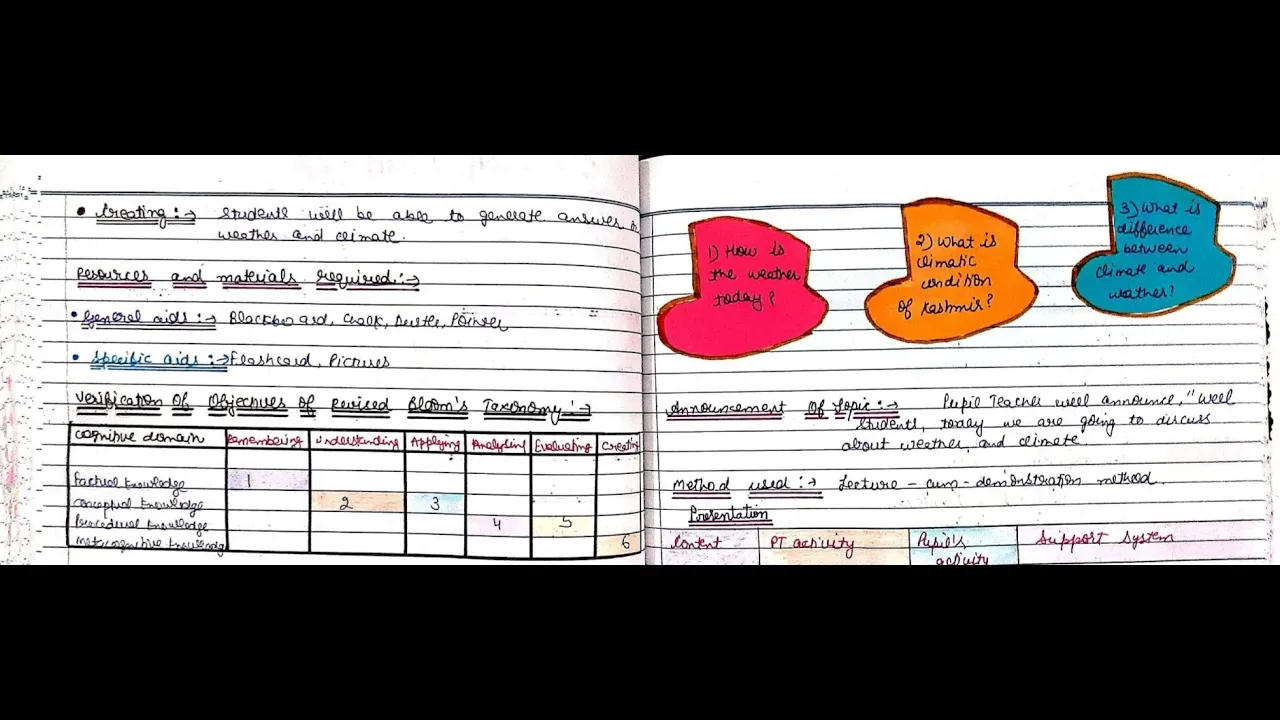 • Creating :→ Students will be able to generate answer on
weather and climate.
Resources and materials required :→
• General aids :→ Blackboard, Chalk, Duster, Pointer
• Specific aids :→ Flashcard, Pictures
Verification Of Objectives Of Revised Bloom's Taxonomy :→
Cognitive domain Remembering Understanding Applying Analysing Evaluating Creatin
Factual knowledge 1
Conceptual knowledge 2 3
Procedural knowledge 4 5
Metacognitive knowledge 6
1) How is
the weather
today?
2) What is
climatic
condition
of Kashmir?
3) What is
difference
between
climate and
weather?
Announcement Of Topic :→ Pupil Teacher will announce, "Well
Students, today we are going to discuss
about weather and climate
Method used :→ Lecture - cum - demonstration method.
Presentation
Content PT activity Pupil's Support System
activity